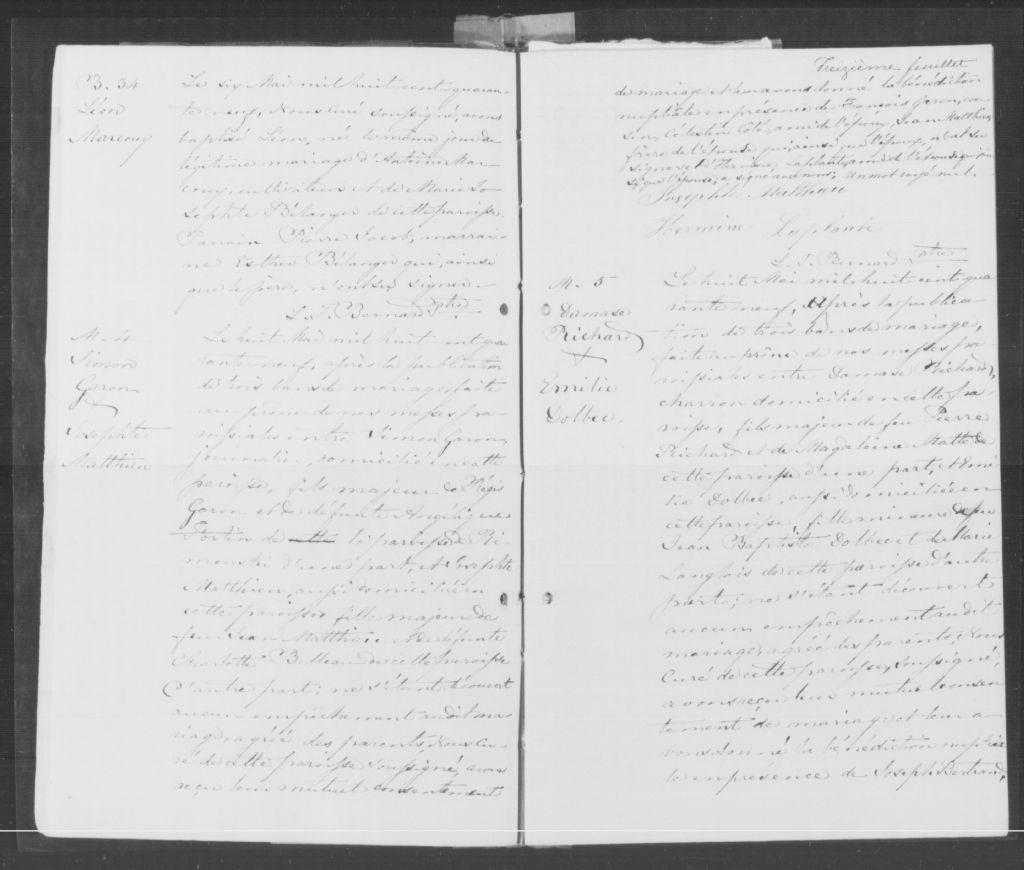 B. 34
Léon
Marcoux
Le six Mai mil huit cent quaran-
te neuf, Nous curé soussigné, avons
baptisé Léon, né le même jour du
légitime mariage d'Antoine Mar
coux, cultivateur et de Marie Jo
sephte Bélanger de cette paroisse.
Parrain Pierre Jacob, marrai-
ne Esther Bélanger qui, ainsi
que le père, n'ont su signer.
L. T. Bernard ptre
M. 4
Simon
Garon
&
Josephte
Matthieu
Le huit Mai mil huit cent qua
rante neuf, après la publication
de trois bans de mariage faite
au prône de nos messes pa-
roissiales entre Simon Garon,
journalier, domicilié en cette
paroisse, fils majeur de Régis
Garon et de défunte Angélique
Fortin de cette la paroisse de Ri-
mouski d'une part, et Josephte
Matthieu, aussi domiciliée en
cette paroisse fille majeure de
feu Jean Matthieu & de défunte
Charlotte Belleau de cette paroisse
d'autre part; ne s'étant découvert
aucun empêchement au dit ma-
riage, agréé des parents, Nous Cu-
ré de cette paroisse soussigné, avons
reçu leur mutuel consentement
Treizième feuillet
de mariage et leur avons donné la bénédiction
nuptiale en présence de François Garon, cou-
sin, Célestin Côté, ami de l'époux, Jean Matthieu,
frère de l'épouse qui, ainsi que l'époux, n'ont su
signer et d'Hermine Laplante amie de l'épouse qui ain
si que l'épouse, a signé avec nous. Un mot rayé nul.
Josephte Mathieu
Hermine Laplante
L. T. Bernard ptre
M. 5
Damase
Richard
&
Emélie
Dolbec.
Le huit Mai mil huit cent qua
rante neuf, Après la publica-
tion de trois bans de mariage,
faite au prône de nos messes pa-
roissiales entre Damase Richard,
charron domicilié en cette pa-
roisse, fils majeur de feu Pierre
Richard et de Magdeleine Matte de
cette paroisse d'une part, et Emé-
lie Dolbec, aussi domiciliée en
cette paroisse, fille mineure de feu
Jean Baptiste Dolbec et de Marie
Langlois de cette paroisse d'autre
part; ne s'étant découvert
aucun empêchement au dit
mariage, agréé des parents, Nous
Curé de cette paroisse, soussigné,
avons reçu leur mutuel consen
tement de mariage et leur a-
vons donné la bénédiction nuptia
le en présence de Joseph Bertrand,